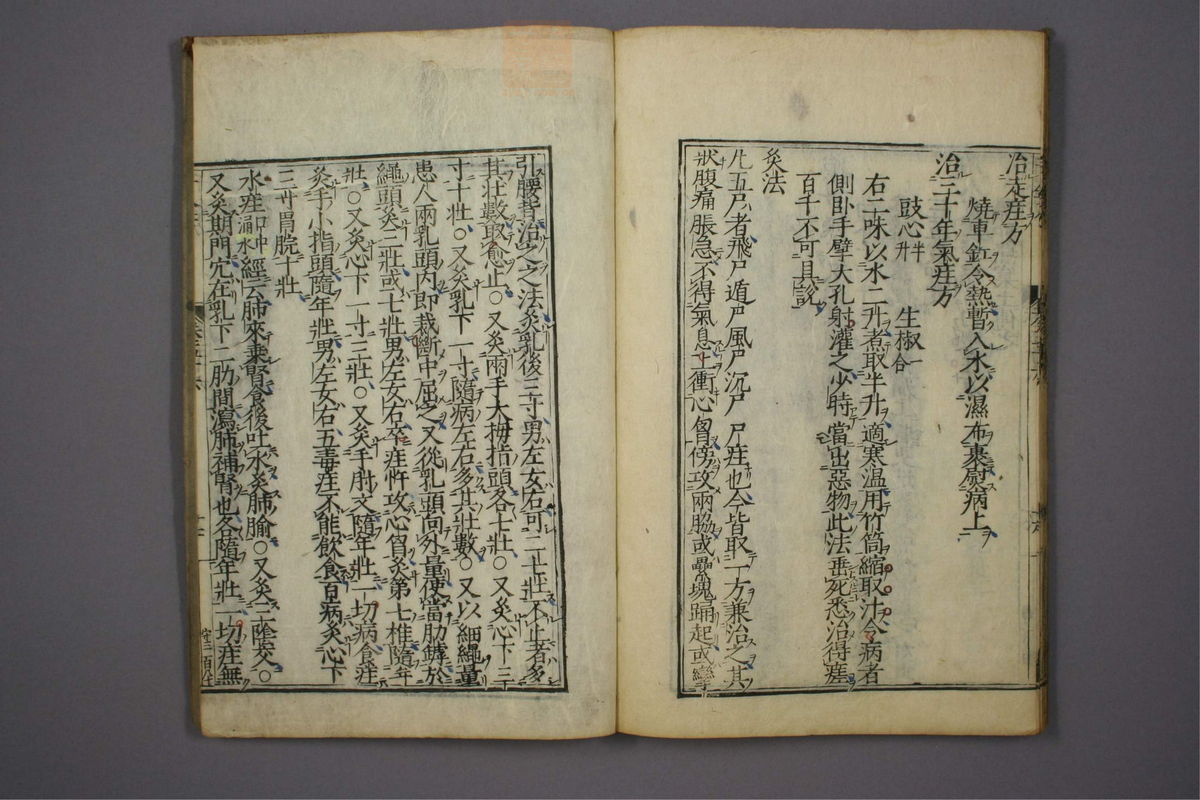 治走疰方
燒車釭令熱暫入水以濕布裹熨病上
治三十年氣疰方
豉心半升 生椒合
右二味以水二升煮取半升適寒温用竹筒縮取汁令病者
側卧手擘大孔射灌之少時當出惡物此法垂死悉治得瘥
百千不可具說
灸法
凡五尸者飛尸遁尸風尸沉尸尸疰也今皆取一方兼治之其
狀腹痛脹急不得氣息上衝心胷傍攻兩脇或壘塊踊起或攣
引腰背治之之法灸乳後三寸男左女右可二七壯不止者多
其壯數取愈止○又灸兩手大拇指頭各七壯○又灸心下三
寸十壯○又灸乳下一寸隨病左右多其壯數○又以細繩量
患人兩乳頭内即裁斷中屈之又從乳頭向外量使當肋罅於
繩頭灸三壯或七壯男左女右卒疰忤攻心胷灸第七椎隨年
壯○又灸心下一寸三壯○又灸手肘文隨年壯一切病食疰
灸手小指頭隨年壯男左女右五毒疰不能飲食百病灸心下
三寸胃脘十壯
水疰口中涌水經云肺來乘腎食後吐水灸肺腧○又灸三陰交○
又灸期門穴在乳下二肋間瀉肺補腎也各隨年壯一切疰無